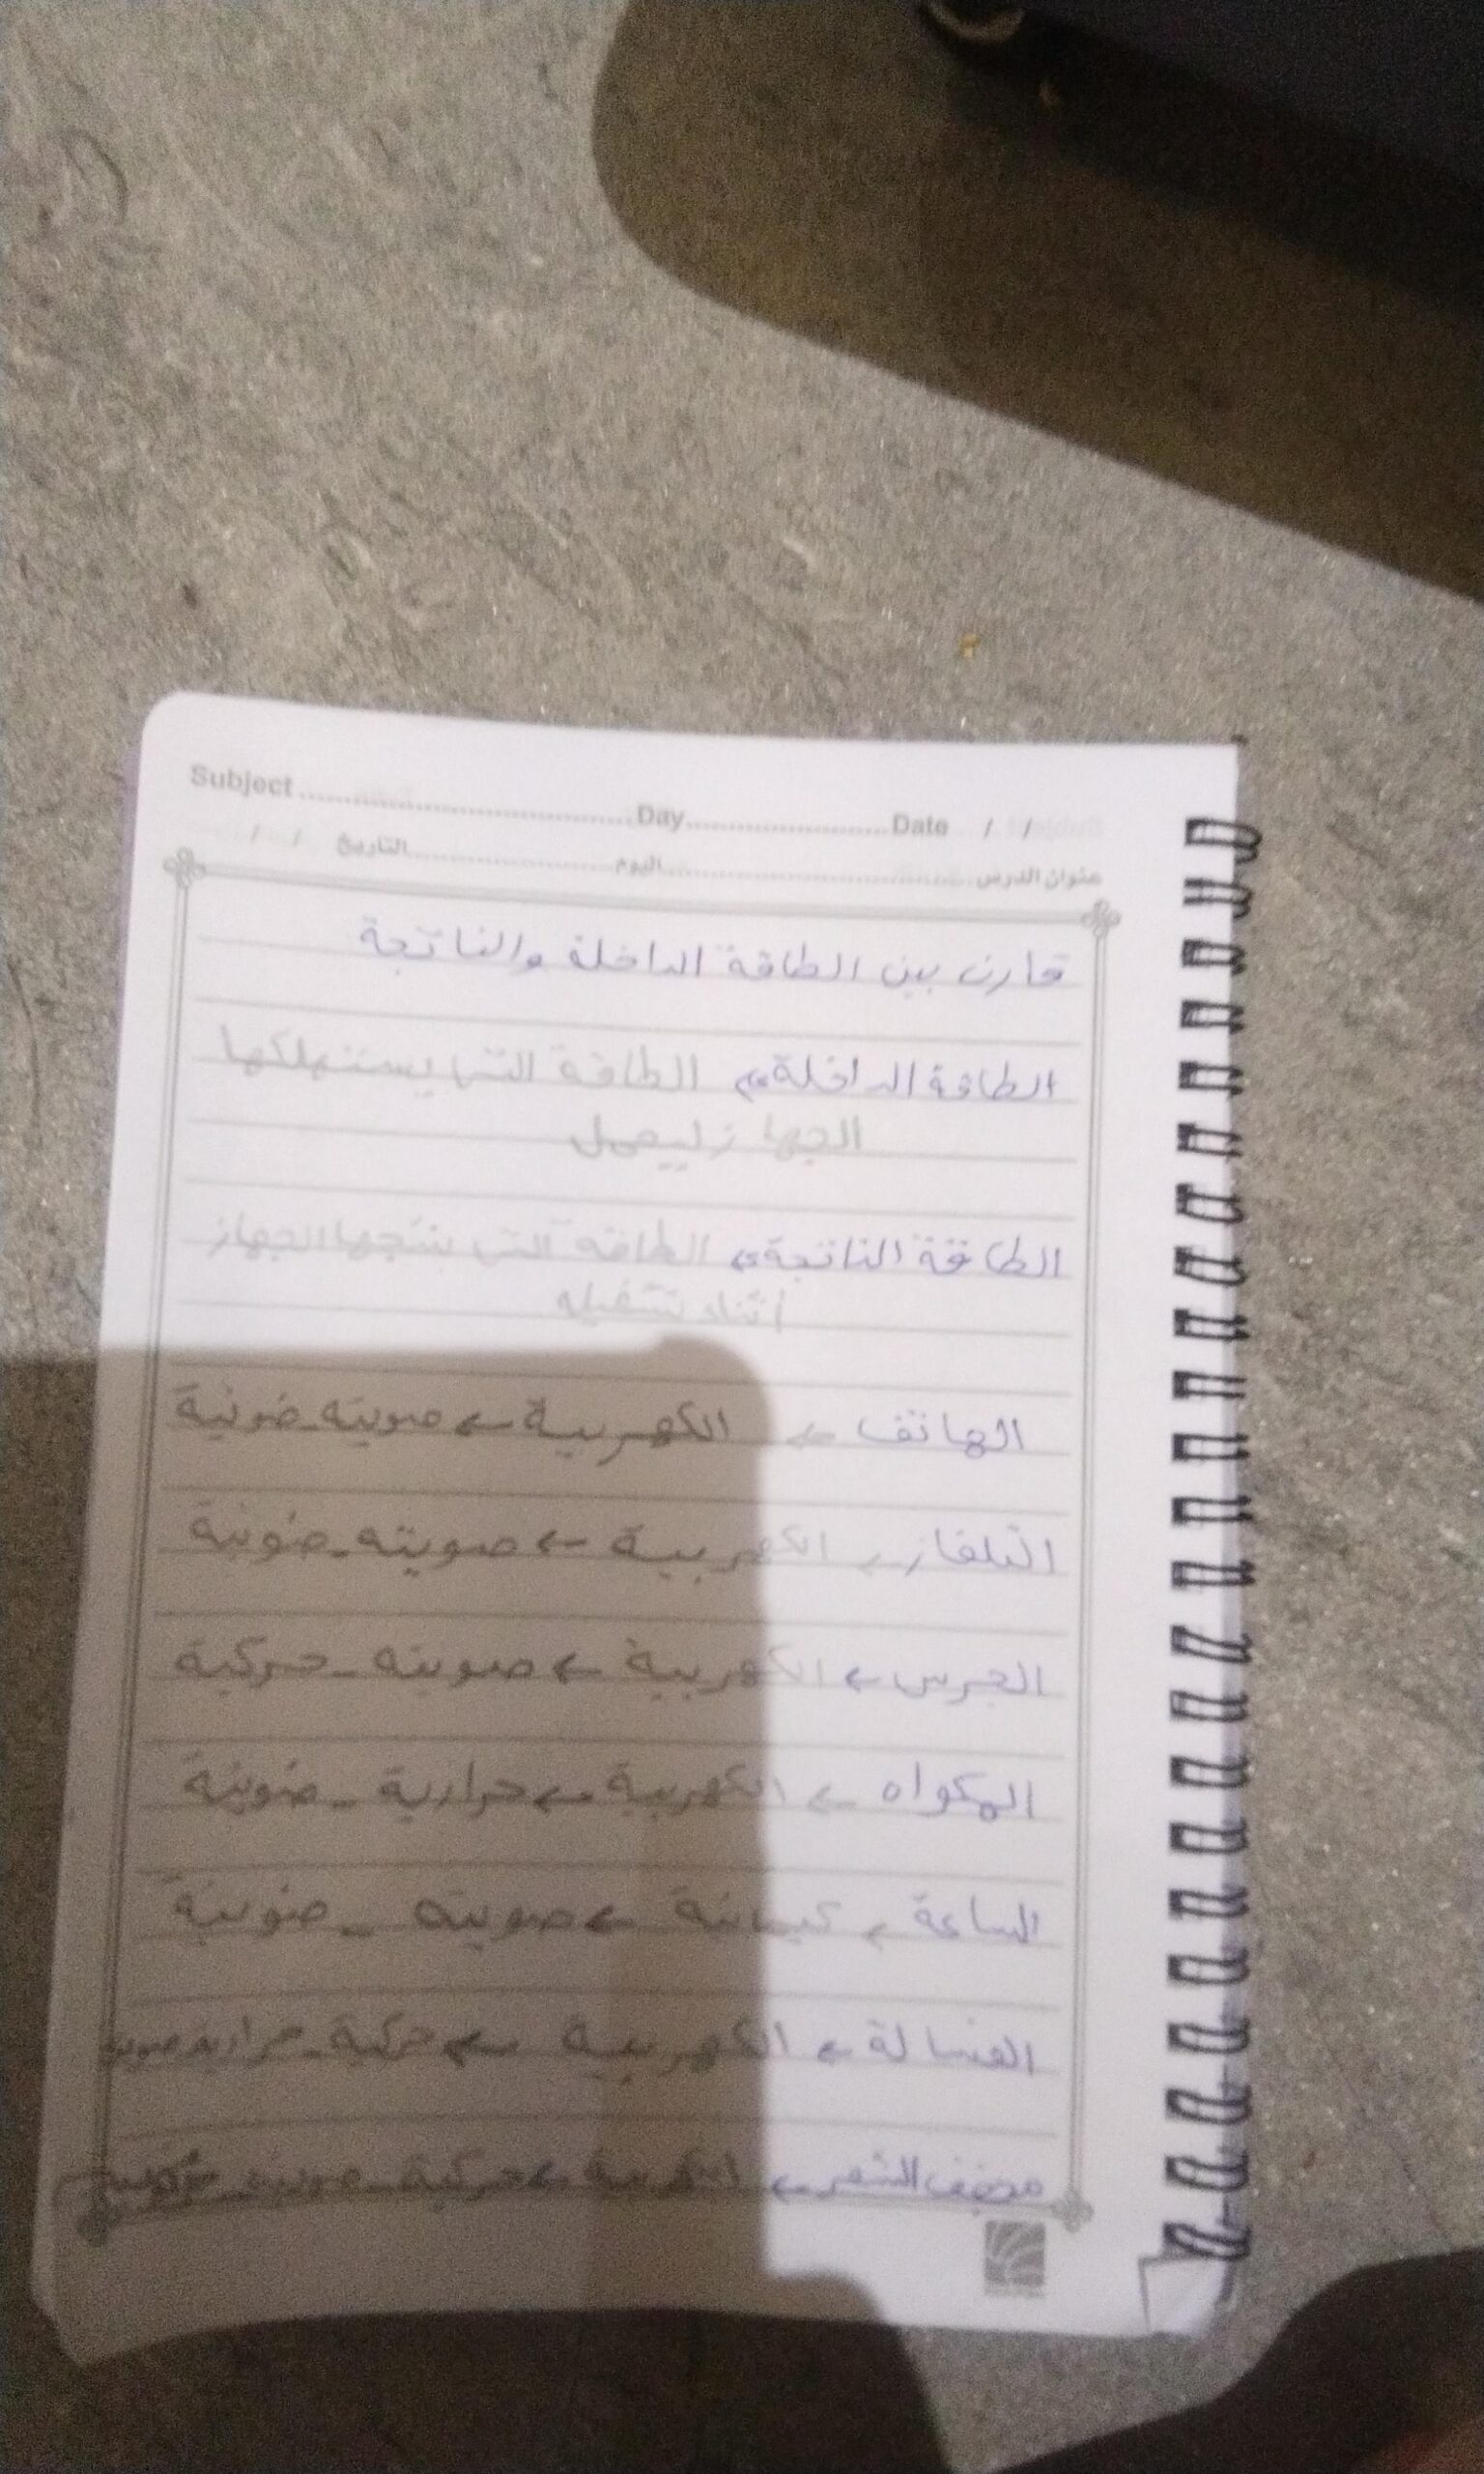 Subject Day Date / /
عنوان الدرس اليوم التاريخ / /
قارن بين الطاقة الداخلة والناتجة
الطاقة الداخلة الطاقة التي يستهلكها
الجهاز ليعمل
الطاقة الناتجة الطاقه التي ينتجها الجهاز
أثناء تشغيله
الهاتف ← الكهربية ← صوتيه - ضوئية
التلفاز ← الكهربية ← صوتيه - ضوئية
الجرس ← الكهربية ← صوتيه - حركية
المكواه ← الكهربية ← حرارية - ضوئية
الساعة ← كيميائية ← صوتية - ضوئية
الغسالة ← الكهربية ← حركية - حرارية صوتية
مجفف الشعر ← الكهربية ← حركية - صوتية